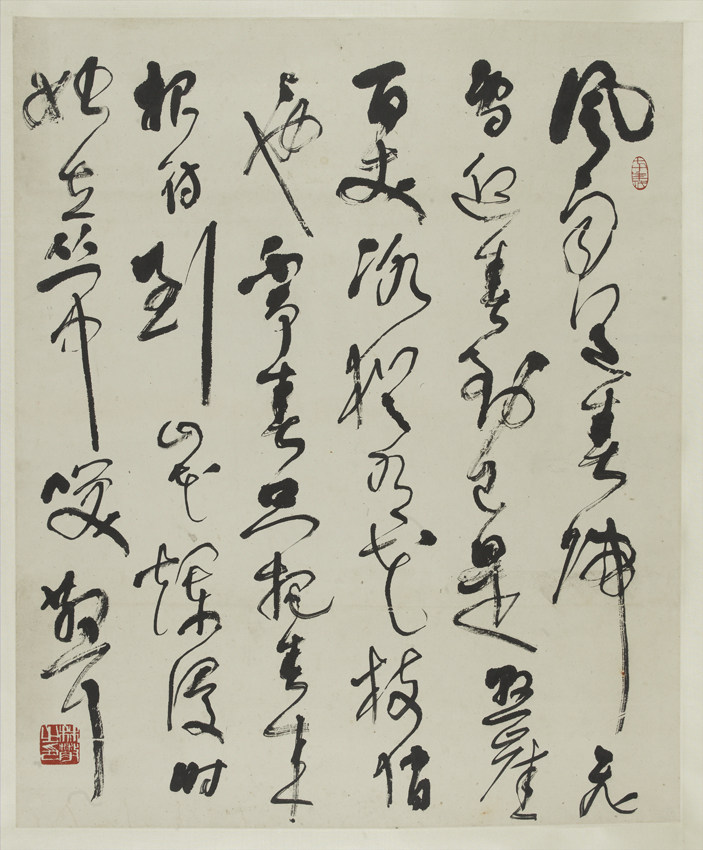 風雨送春歸飛
雪迎春到已是懸崖
百丈冰猶有花枝俏
俏也不爭春只把春來
報待到山花爛漫時
她在丛中笑 散耳
林散之印